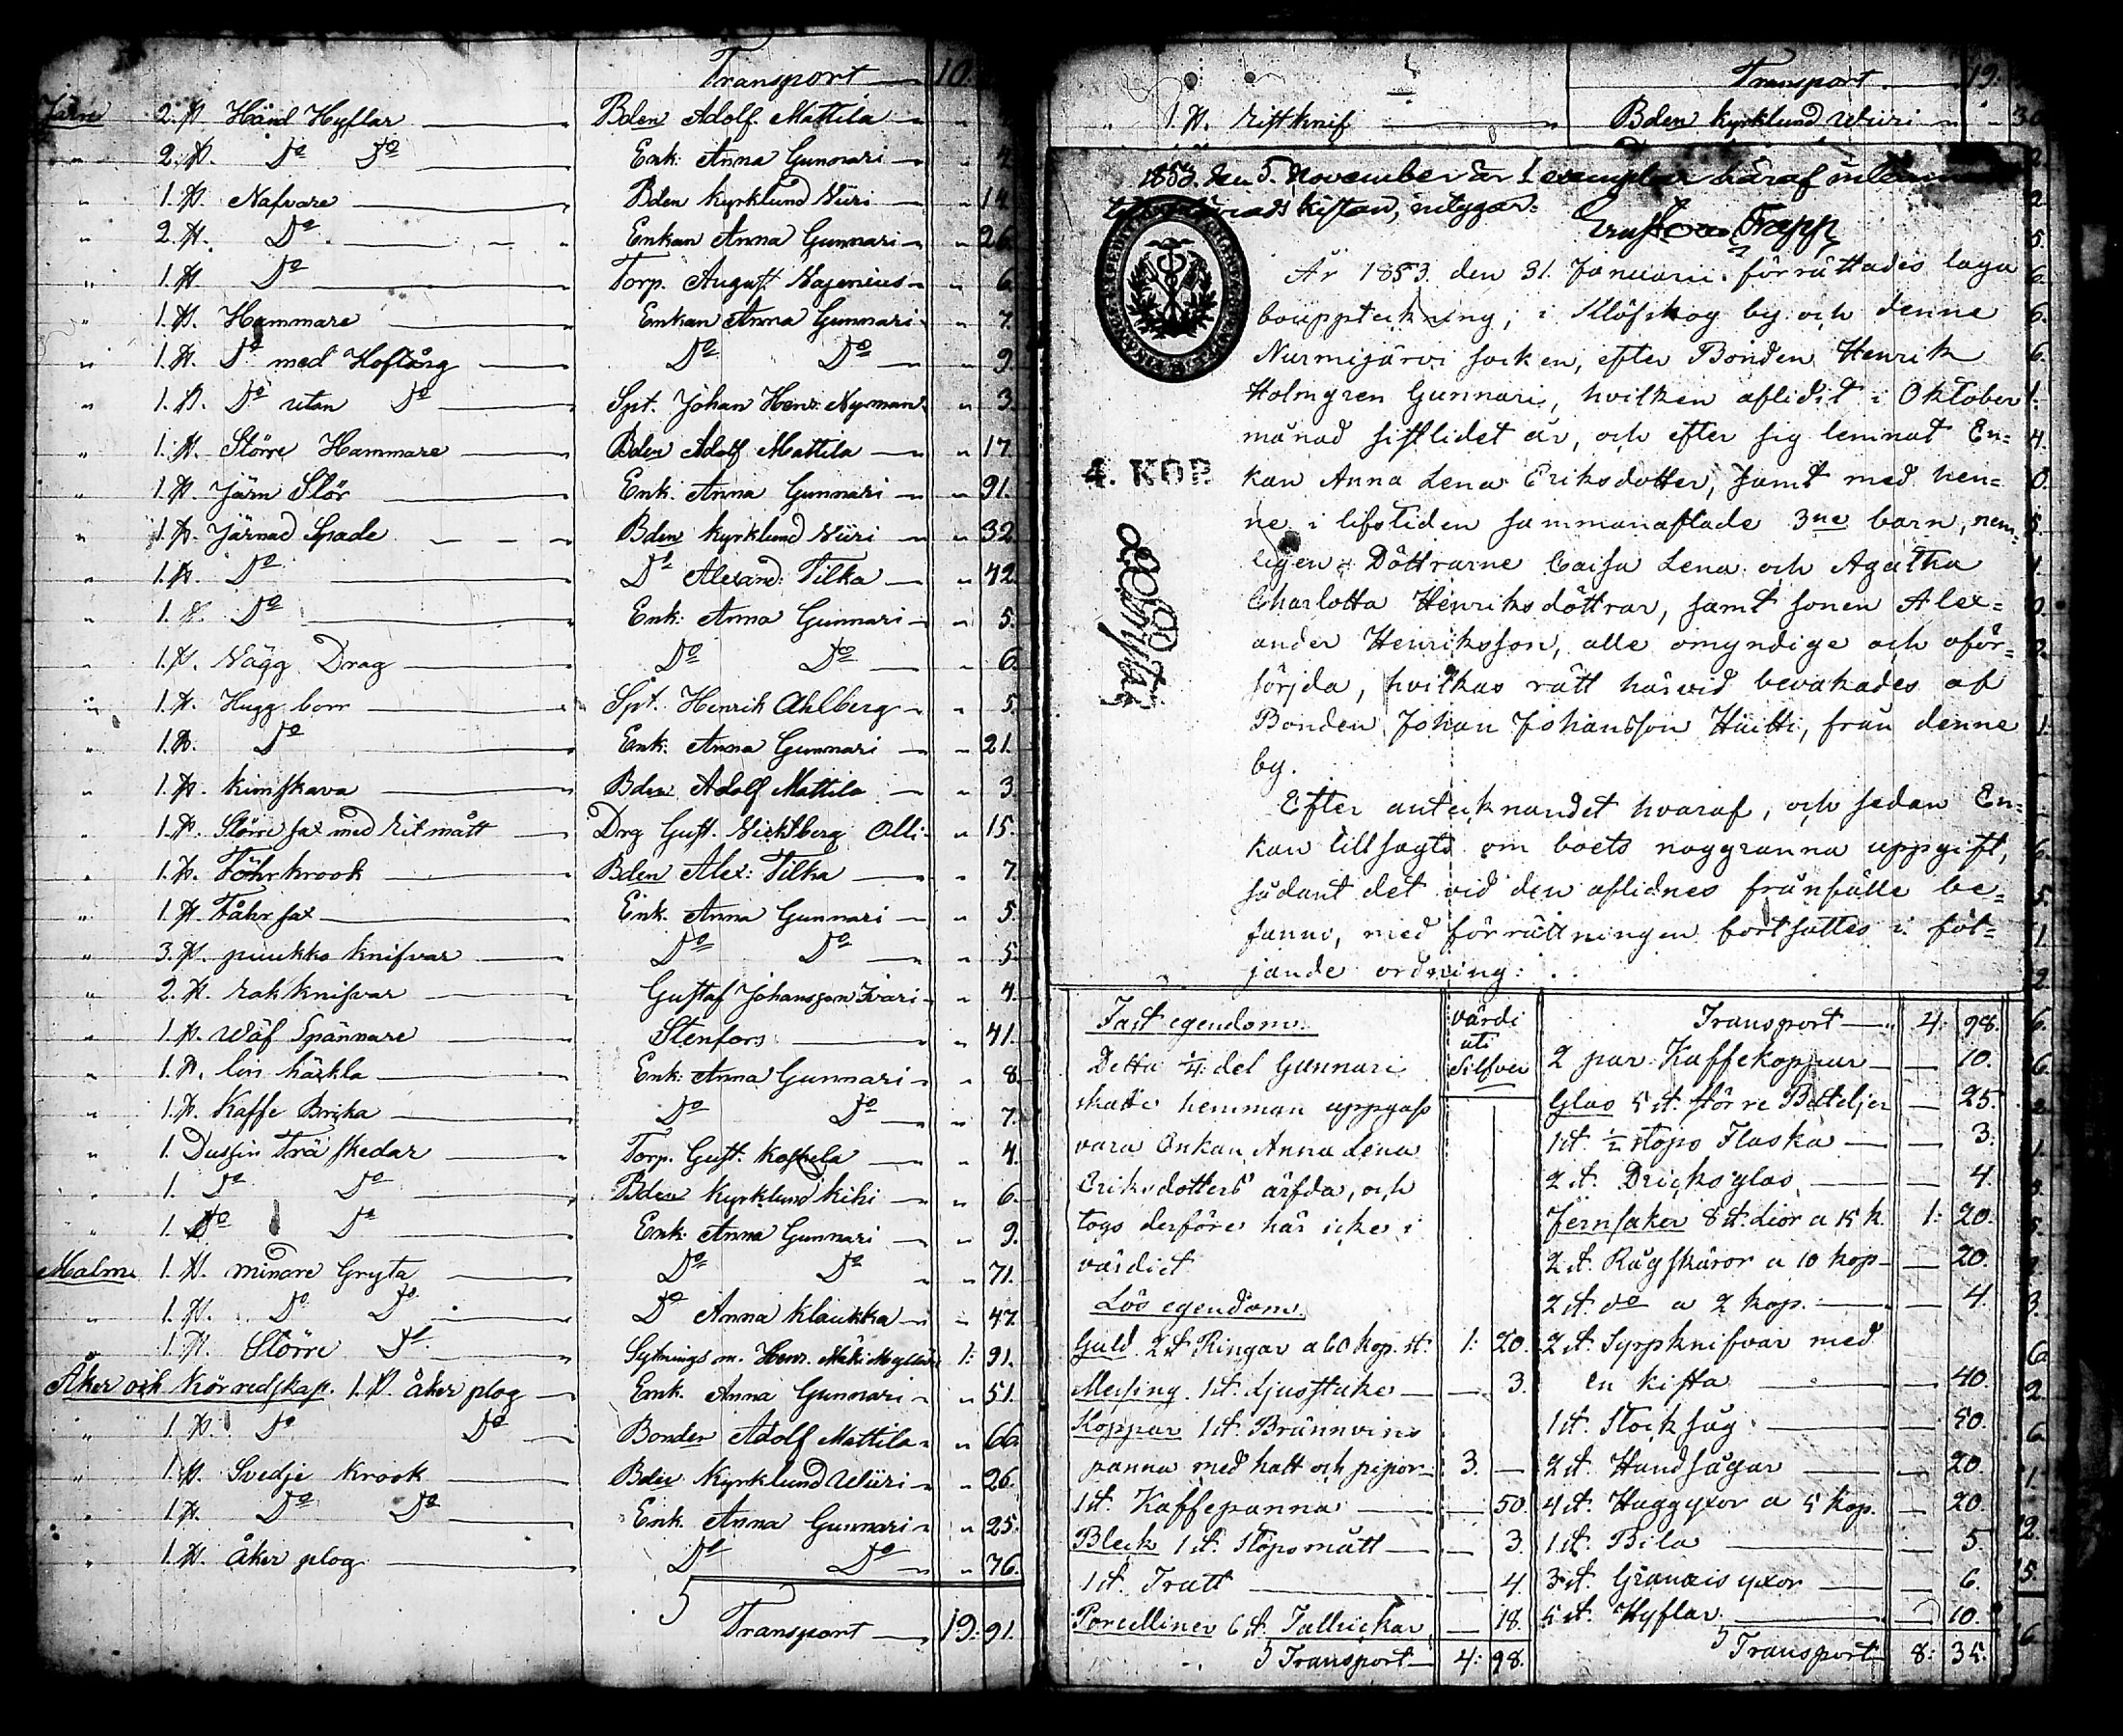 Transport 10.
Järn 2. st. Hand Hyflar Bden Adolf Mattila
" 2. st. Do Do Enk: Anna Gunnari " 4.
" 1. st. Nafvare Bden Kyrklund Wiiri " 14.
" 2. st. Do Enkan Anna Gunnari " 26.
" 1. st. Do Torp. August Wagenius " 6.
" 1. st. Hammare Enkan Anna Gunnari " 7.
" 1. st. Do med Hoftång Do Do " 9.
" 1. st. Do utan Do Spt. Johan Henr: Nyman " 3.
" 1. st. Större Hammare Bden Adolf Mattila " 17.
" 1. st. Järn Stör Enk: Anna Gunnari " 91.
" 1. st. Järnad Spade Bden Kyrklund Wiiri " 32.
" 1. st. Do Do Alexand: Tilka " 42.
" 1. st. Do Enk: Anna Gunnari " 5.
" 1. st. Vägg Drag Do Do " 6.
" 1. st. Hugg borr Spt. Henrik Ahlberg " 5.
" 1. st. Do Enk: Anna Gunnari " 21.
" 1. st. Kimskava Bden Adolf Mattila " 3.
" 1. st. Större sax med Ritmått Drg Gust. Olli " 15.
" 1. st. Fåhr krook Bden Alex: Tilka " 7.
" 1. st. Fåhr sax Enk. Anna Gunnari " 5.
" 3. st. puukko knifvar Do Do " 5.
" 2. st. rak knifvar Gustaf Johansson Iivari " 4.
" 1. st. Wäf Spännare Stenfors " 41.
" 1. st. lin häckla Enk: Anna Gunnari " 8.
" 1. st. Kaffe Bricka Do Do " 7.
" 1. Dussin Trä skedar Torp. Gust. Koskela " 4.
" 1. Do Do Bden Kyrklund Kiki " 6.
" 1. Do Do Enk. Anna Gunnari " 9.
Malm 1. st. mindre Gryta Do Do " 71.
" 1. st. Do Do Do Anna Klaukka " 47.
" 1. st. Större Do Sytningsm. Henr. Mäki 1: 91.
Åker och Körredskap. 1. st. åker plog Enk. Anna Gunnari " 51.
" 1. st. Do Do Bonden Adolf Mattila " 66.
" 1. st. Svedje Krook Bden Kyrklund Wiiri " 26.
" 1. st. Do Do Enk. Anna Gunnari " 25.
" 1. st. åker plog Do Do " 76.
Transport 19. 91.
Transport 19.
" 1. st. ristknif Bden Kyrklund Wiiri " 30
1853. den 5. November är 1 exemplar häraf
kistan, intygar:
Trapp
År 1853 den 31. Januarii förrättades laga
bouppteckning, i Klöfskog by och denne
Nurmijärvi socken, efter Bonden Henrik
Holmgren Gunnari, hvilken aflidit i Oktober
månad sistlidet år, och efter sig lemnat En=
4. KOP. kan Anna Lena Eriksdotter, samt med hen=
ne i lifstiden sammanaflade 3ne barn, nem=
ligen: Döttrarne Caisa Lena och Agatha
Charlotta Henriksdöttrar, samt sonen Alex=
ander Henriksson, alle omyndige och oför=
sörjda, hvilkas rätt härvid bevakades af
Bonden Johan Johansson Huitti, från denne
by.
Efter antecknandet hvaraf, och sedan En=
kan tillsagts om boets noggranna uppgift,
sådant det vid den aflidnes frånfälle be=
fanns, med förrättningen fortsattes i föl=
jande ordning:
Fast egendom. värdi uti Silfver
Detta 1/4 del Gunnari
skatte hemman uppgafs
vara Enkan Anna Lena
Eriksdotters ärfda, och
togs derföre här icke i
värdiet
Lös egendom.
Guld. 2 st Ringar a 60 kop. st: 1: 20.
Messing. 1 st. Ljusstake — 3.
Koppar 1 st. Brännvins
panna med hatt och pipor 3. —
1 st. Kaffepanna — 50.
Bleck 1 st. Stopsmått — 3.
1 st. Tratt — 4.
Porcelliner 6 st. Tallrickar — 18.
Transport 4: 98.
Transport 4: 98.
2 par Kaffekoppar — 10.
Glas 5 st. större Buteljer — 25.
1 st. 1/2 stops Flaska — 3.
2 st. Dricksglas — 4.
Jernsaker 8 st. Lior a 15 k. 1: 20.
2 st. Rågskäror a 10 kop — 20.
2 st. do a 2 kop. — 4.
2 st. Syppknifvar med
en kista — 40
1 st. Stocksåg — 50.
2 st. Handsågar — 20.
4 st. Huggyxor a 5 kop. — 20.
1 st. Bila — 5
3 st. yxor — 6.
5 st. Hyflar — 10.
Transport 8: 35.